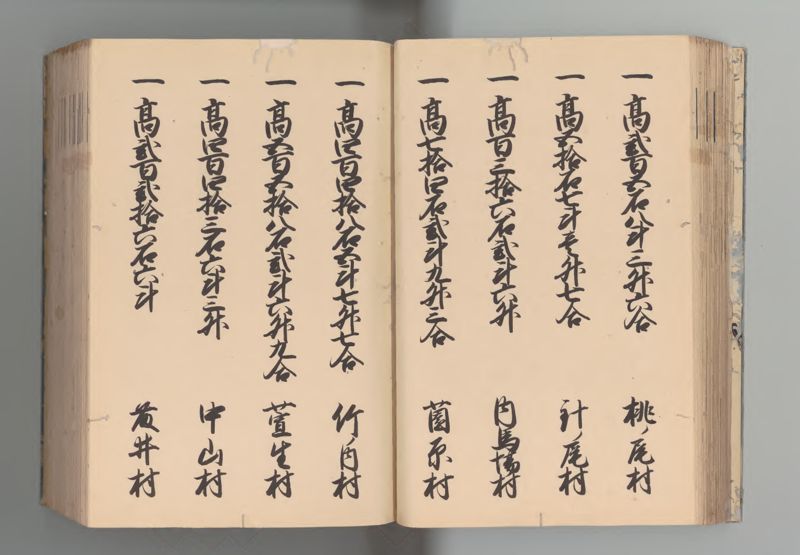 一 高弐百五石八斗三升六合 桃ノ尾村
一 高五拾石七斗壱升七合 針ノ尾村
一 高百三拾六石弐斗六升 内馬場村
一 高七拾四石弐斗九升三合 薗原村
一 高四百四拾八石五斗七升七合 竹ノ内村
一 高五百五拾八石弐斗六升九合 萱生村
一 高四百四拾三石六斗三升 中山村
一 高弐百弐拾六石六斗 井村